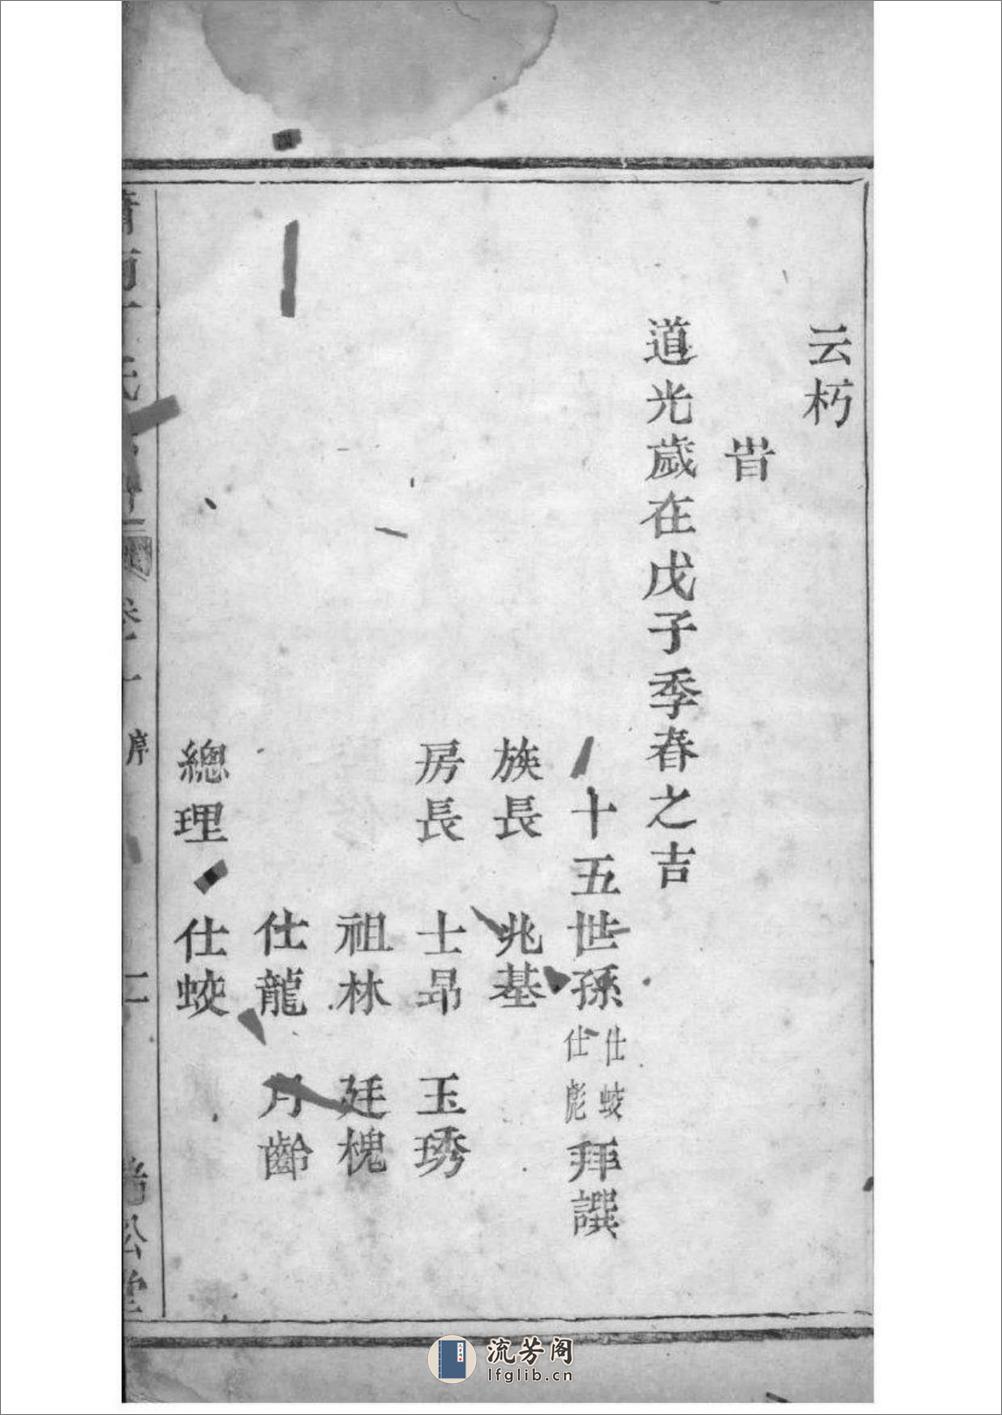 云朽
旹
道光歲在戊子季春之吉
十五世孫 仕蛟 仕彪 拜譔
族長 兆基
房長 士昂 玉琇
祖林 廷槐
仕龍 齡
總理 仕蛟
氏 卷 序 公堂
流芳阁
lfglib.cn